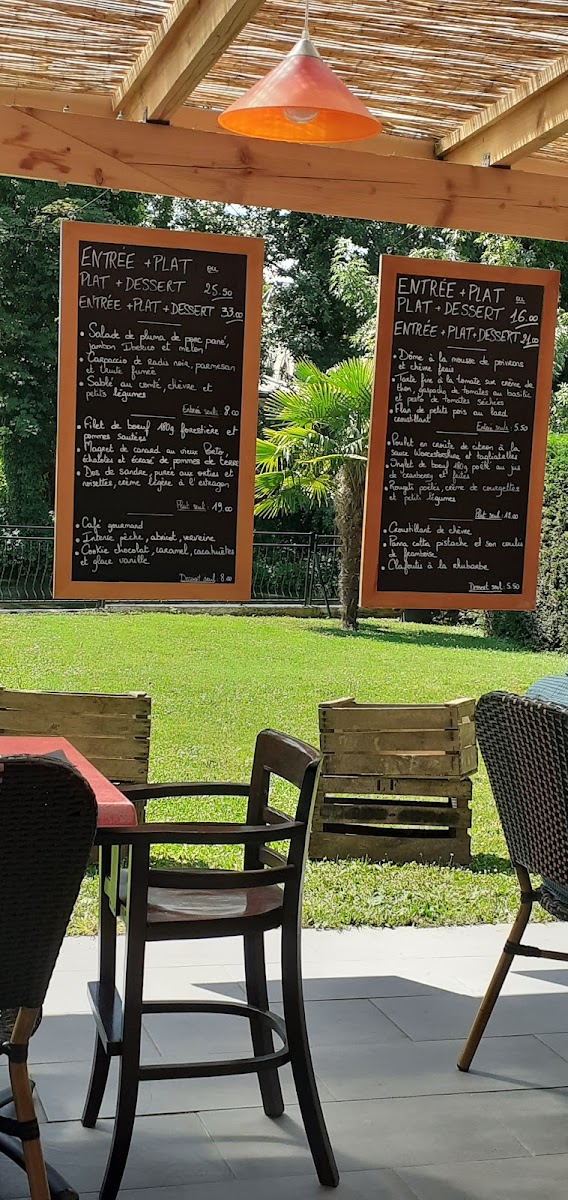 ENTRÉE + PLAT ou
PLAT + DESSERT 25.50
ENTRÉE + PLAT + DESSERT 33.00
• Salade de pluma de porc pané,
jambon Iberico et melon
• Carpaccio de radis noir, parmesan
et truite fumée
• Sablé au comté, chèvre et
petits légumes
Entrée seule : 8.00
• Filet de boeuf 180g forestière et
pommes sautées
• Magret de canard au vieux Porto,
échalotes et écrasé de pommes de terre
• Dos de sandre, purée aux orties et
noisettes, crème légère à l'estragon
Plat seul : 19.00
• Café gourmand
• Intense pêche, abricot, verveine
• Cookie chocolat, caramel, cacahuètes
et glace vanille
Dessert seul : 8.00
ENTRÉE + PLAT ou
PLAT + DESSERT 16.00
ENTRÉE + PLAT + DESSERT 21.00
• Dôme à la mousse de poivrons
et chèvre frais
• Tarte fine à la tomate sur crème de
thon, gaspacho de tomates au basilic
et pesto de tomates séchées
• Flan de petits pois au lard
croustillant
Entrée seule : 5.50
• Poulet en croûte de citron à la
sauce Worcestershire et tagliatelles
• Onglet de boeuf 180g poêlé au jus
de cranberry et frites
• Rougets poêlés, crème de courgettes
et petits légumes
Plat seul : 12.00
• Croustillant de chèvre
• Panna cotta pistache et son coulis
de framboise
• Clafoutis à la rhubarbe
Dessert seul : 5.50